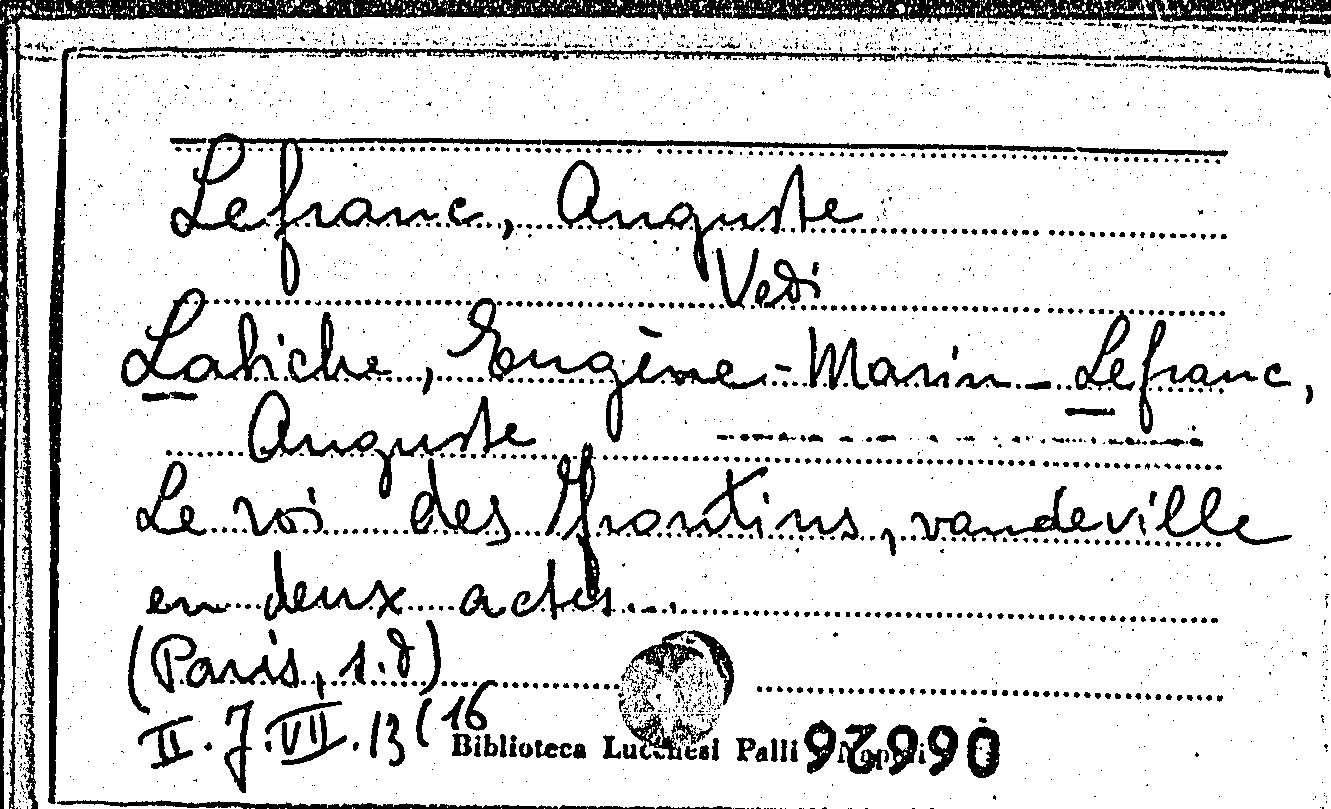 Lefranc, Auguste
Vedi
Labiche, Eugène-Marin - Lefranc,
Auguste
Le roi des Frontins, vaudeville
en deux actes...
(Paris, s.d)
II. J. VII. 13 (16
Biblioteca Lucchesi Palli Napoli